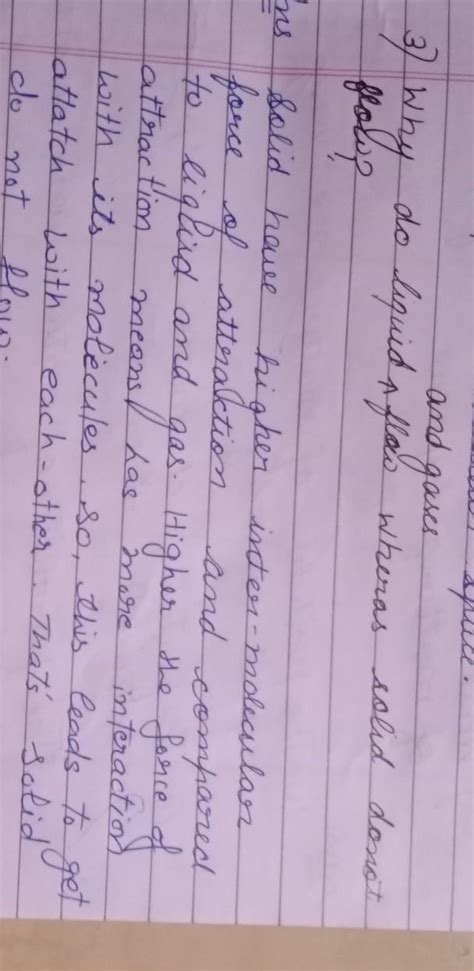 space.
and gases
3) Why do liquid ^ flow wheras solid donot
flow?
ns solid have higher inter-molecular
force of attraction and compared
to liquid and gas. Higher the force of
attraction means has more interaction
with its molecules. So, this leads to get
attatch with each-other. That's solid
do not flow.